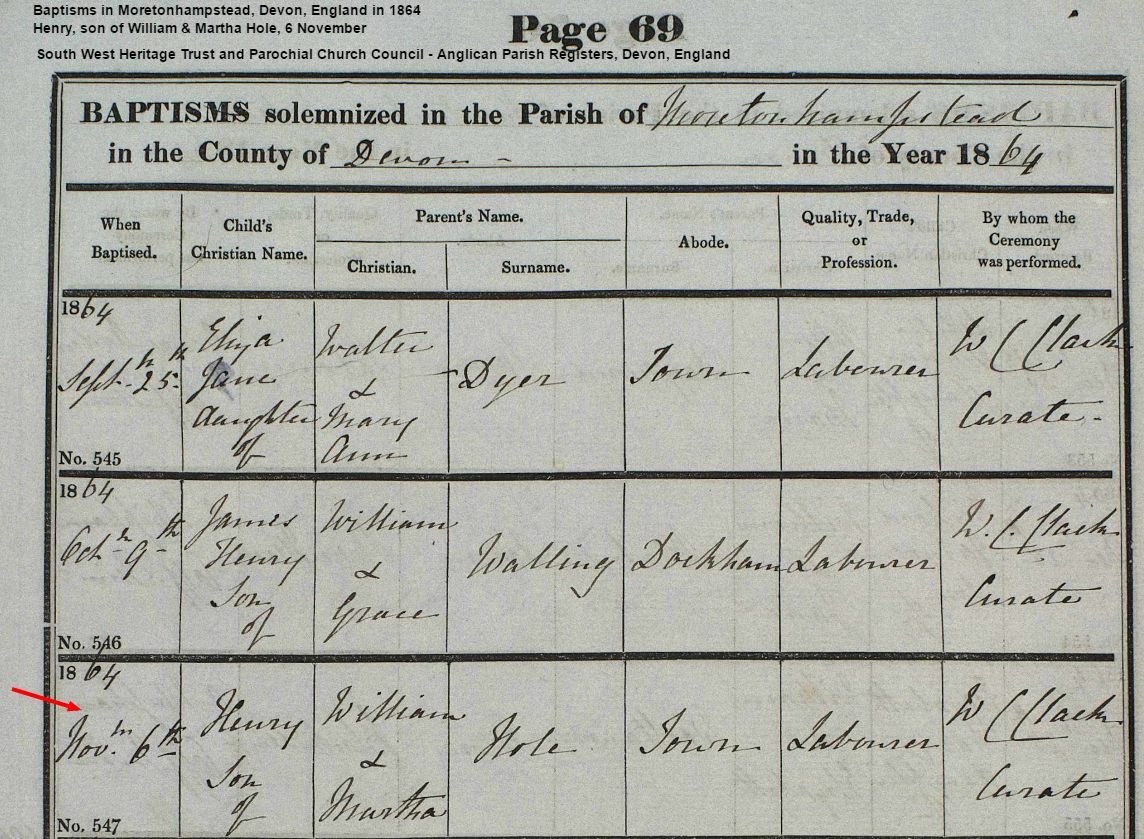 Baptisms in Moretonhampstead, Devon, England in 1864
Henry, son of William & Martha Hole, 6 November
Page 69
South West Heritage Trust and Parochial Church Council - Anglican Parish Registers, Devon, England
BAPTISMS solemnized in the Parish of Moretonhampstead
in the County of Devon - in the Year 1864
When Baptised.
Child's Christian Name.
Parent's Name.
Christian.
Surname.
Abode.
Quality, Trade, or Profession.
By whom the Ceremony was performed.
1864
Septr. 25th
No. 545
Eliza
Jane
daughter
of
Walter
&
Mary
Ann
Dyer
Town
Labourer
W C Clack
Curate -
1864
Octr 9th
No. 546
James
Henry
Son
of
William
&
Grace
Walling
Dockham
Labourer
W. C. Clack
Curate
1864
Novr. 6th
No. 547
Henry
Son
of
William
&
Martha
Hole
Town
Labourer
W C Clack
Curate